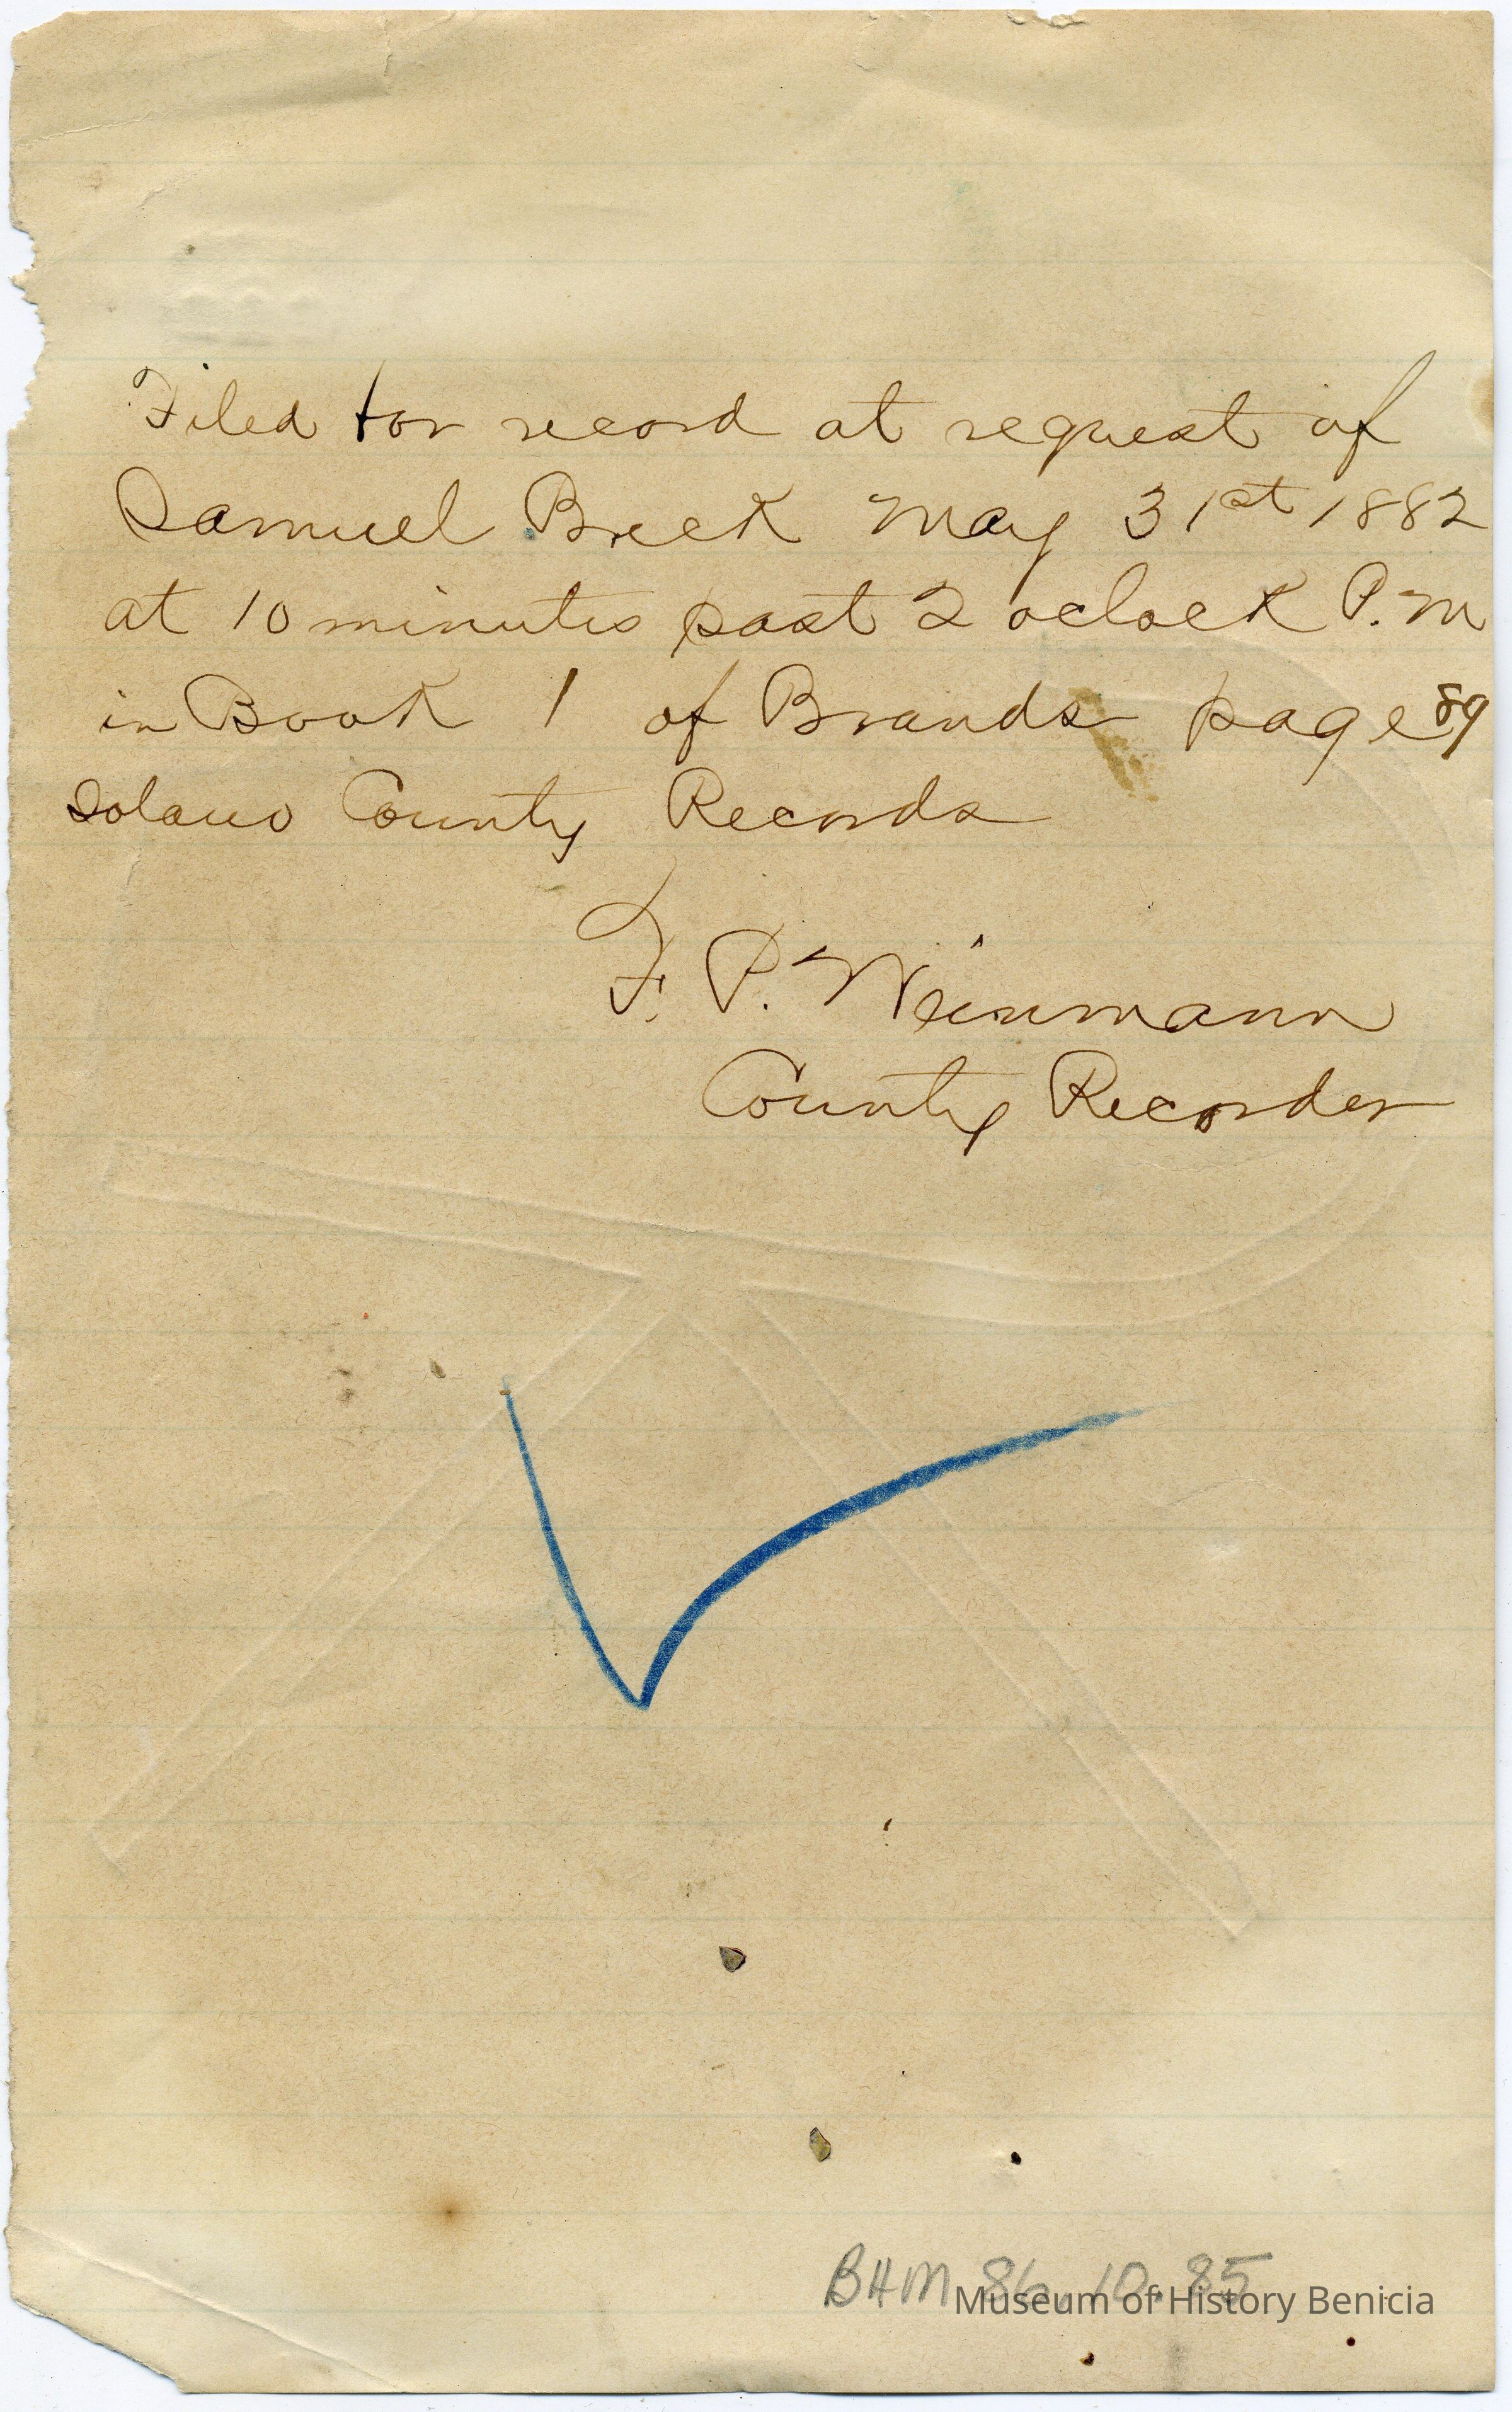 Filed for record at request of
Samuel Breck May 31st 1882
at 10 minutes past 2 oclock P.M
in Book 1 of Brands page 89
Solano County Records
F. P. Weinmann
County Recorder
BHM 86.10.85
Museum of History Benicia